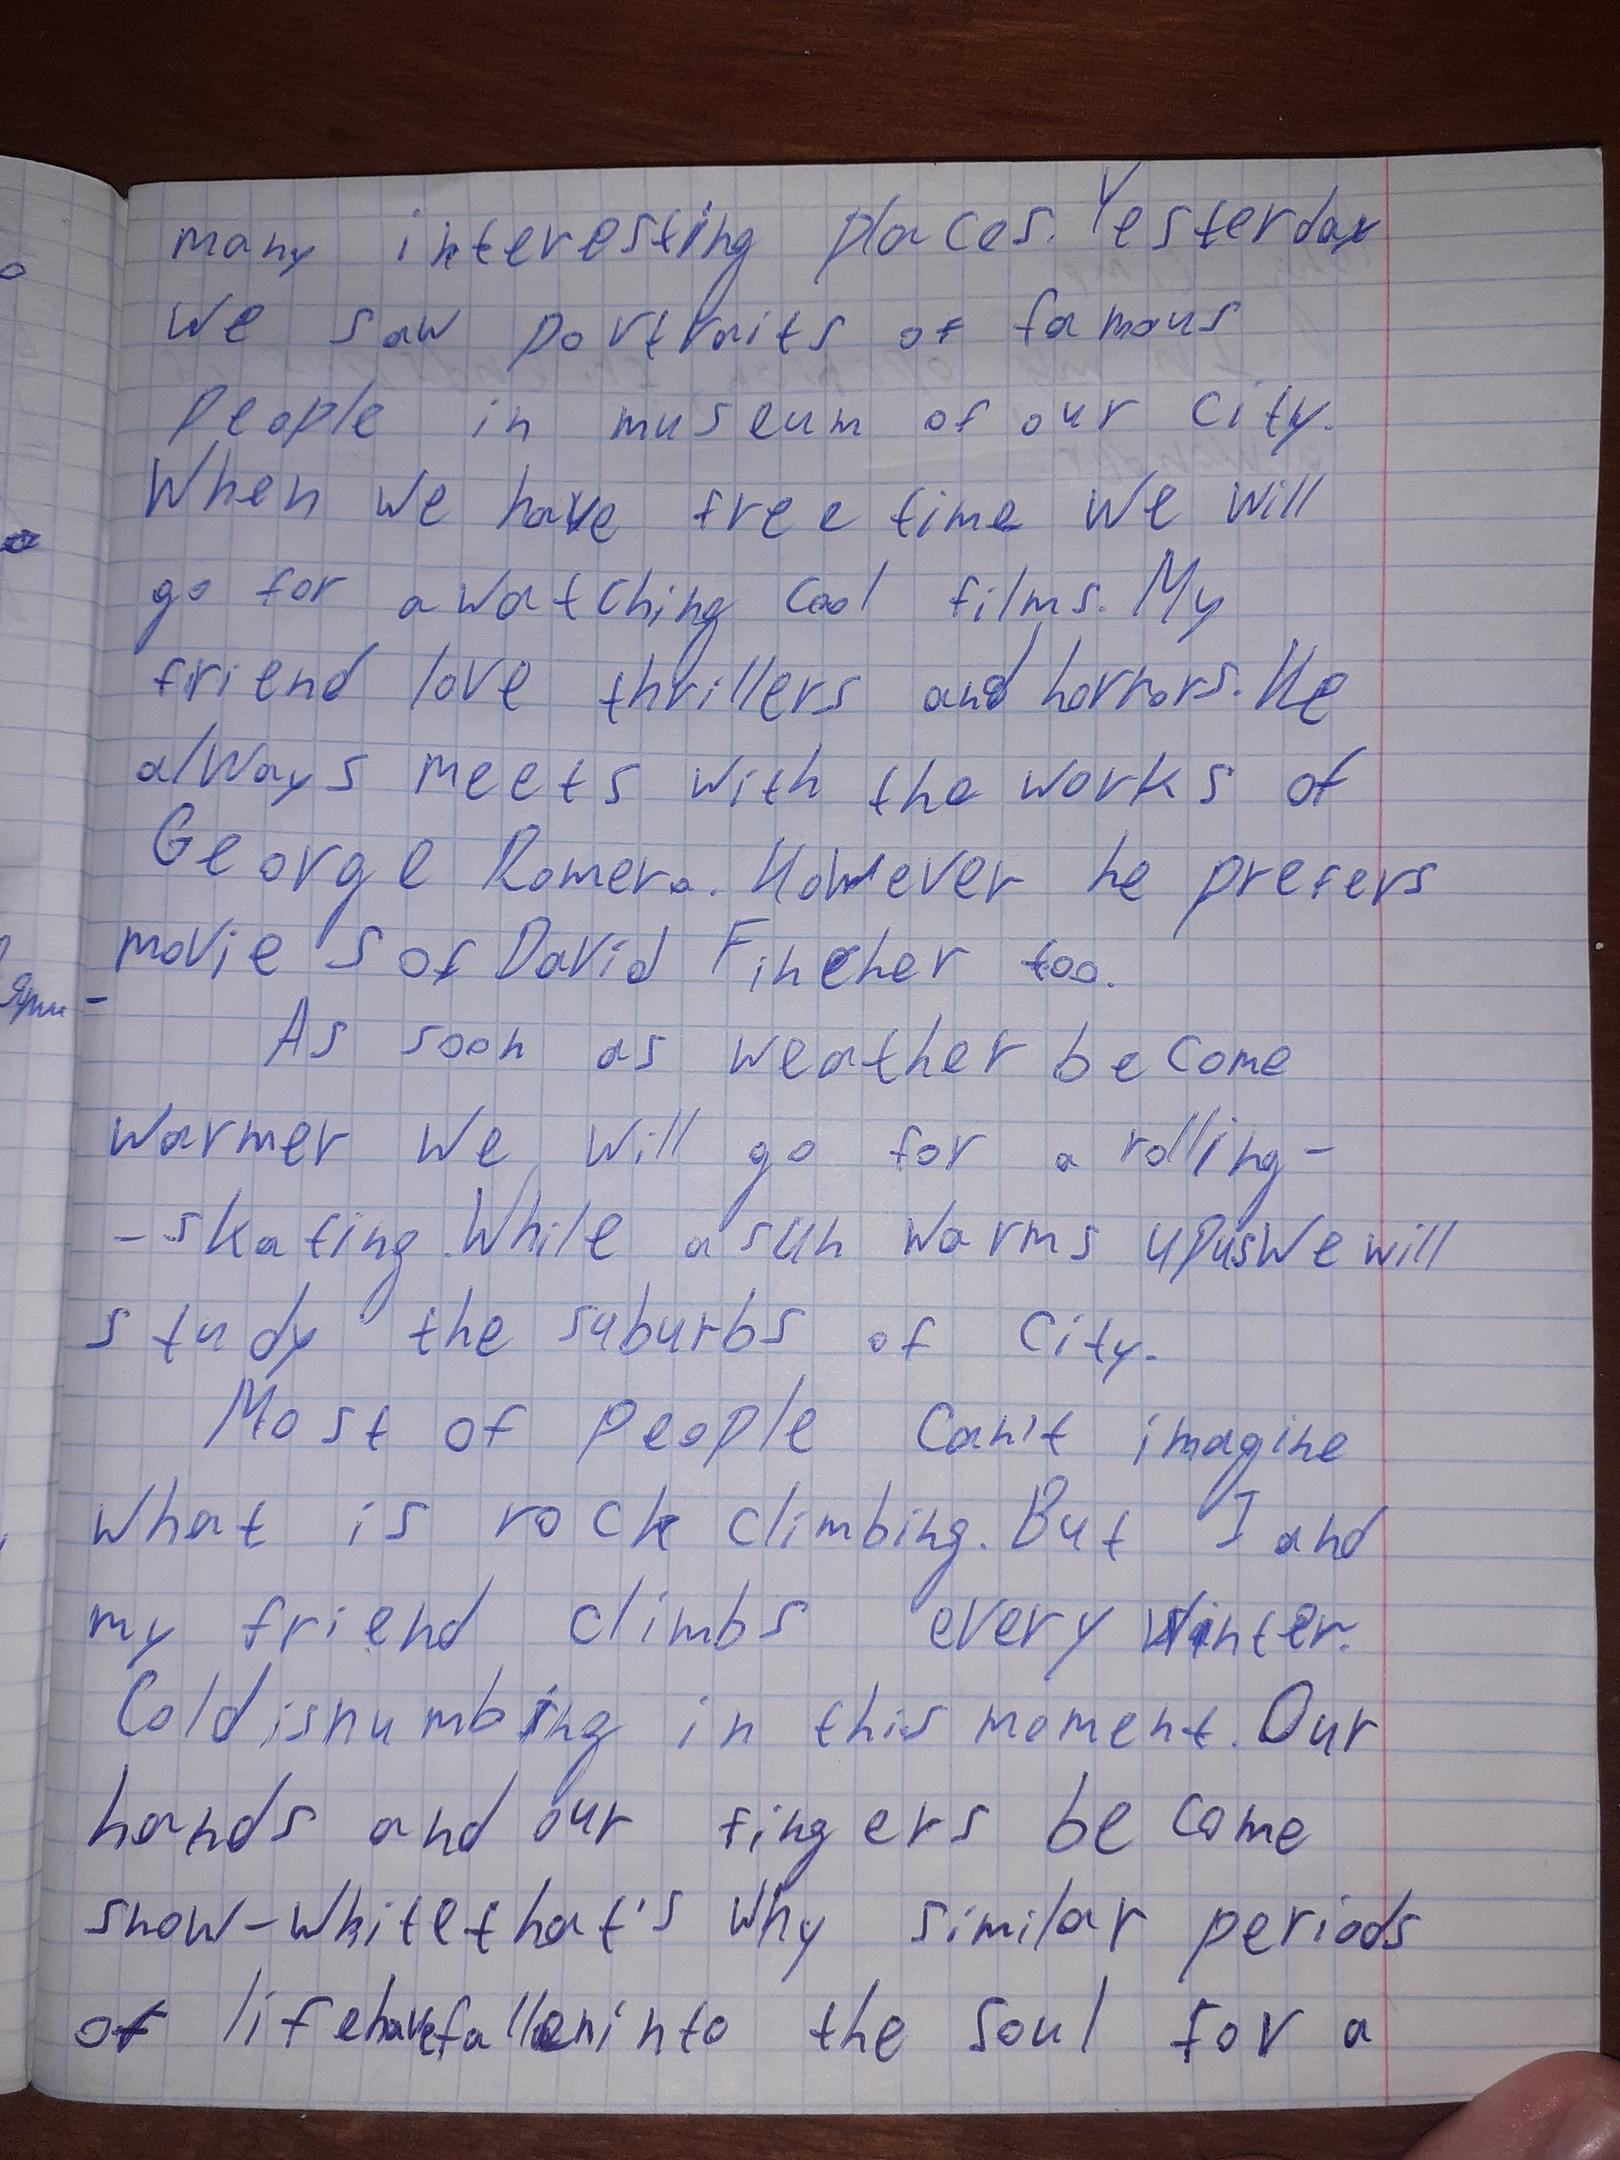 many interesting places. Yesterday
we saw portraits of famous
people in museum of our city.
When we have free time we will
go for a watching cool films. My
friend love thrillers and horrors. He
always meets with the works of
George Romero. However he prefers
movies of David Fincher too.
As soon as weather become
warmer we will go for a rolling-
-skating. While a sun warms up us we will
study the suburbs of city.
Most of people can't imagine
what is rock climbing. But I and
my friend climbs every winter.
Cold is numbing in this moment. Our
hands and our fingers become
snow-white that's why similar periods
of life have fallen into the soul for a